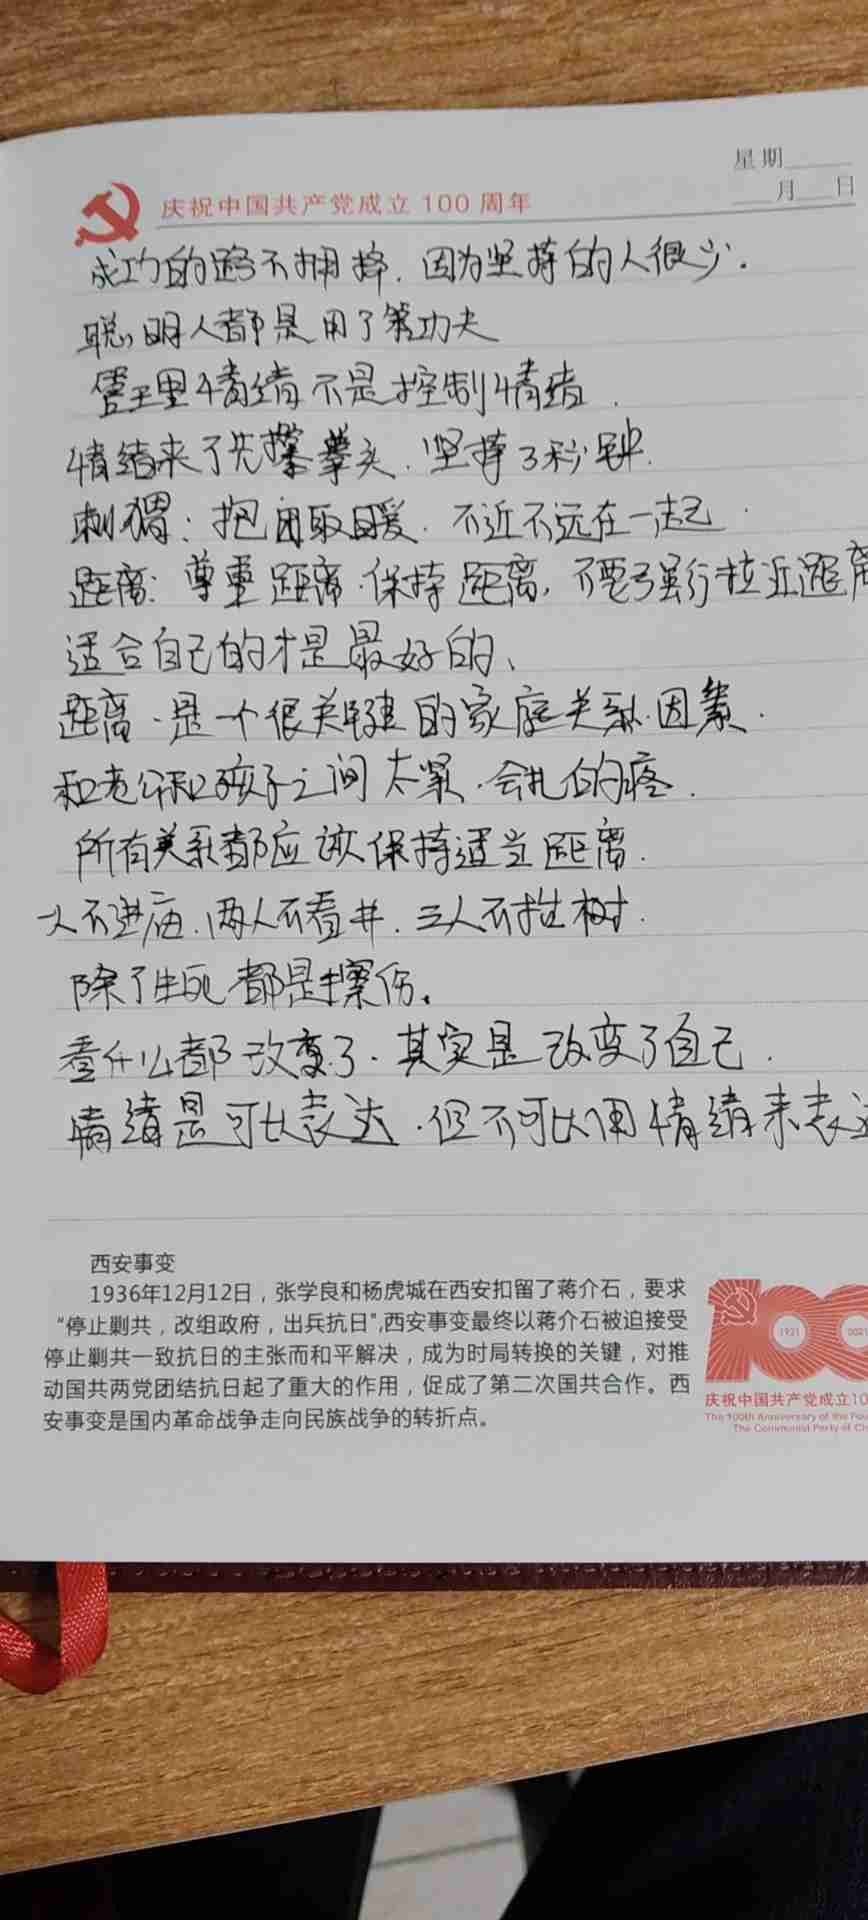 星期
月 日
庆祝中国共产党成立 100 周年
成功的路不拥挤.因为坚持的人很少.
聪明人都是用了笨功夫
管理情绪不是控制情绪.
情绪来了先攥拳头.坚持3秒钟.
刺猬:抱团取暖.不近不远在一起.
距离:尊重距离.保持距离,不要强行拉近距离
适合自己的才是最好的、
距离.是一个很关键的家庭关系.因素.
和老公和孩子之间太紧.会扎的疼.
所有关系都应该保持适当距离.
一人不进庙.两人不看井.三人不抱树.
除了生死都是擦伤.
看什么都改变了.其实是改变了自己.
情绪是可以表达.但不可以用情绪来表达
西安事变
1936年12月12日，张学良和杨虎城在西安扣留了蒋介石，要求
“停止剿共，改组政府，出兵抗日",西安事变最终以蒋介石被迫接受
停止剿共一致抗日的主张而和平解决，成为时局转换的关键，对推
动国共两党团结抗日起了重大的作用，促成了第二次国共合作。西
安事变是国内革命战争走向民族战争的转折点。
100
1921
庆祝中国共产党成立10
The 100th Anniversary of the Fou
The Communist Party of Ch